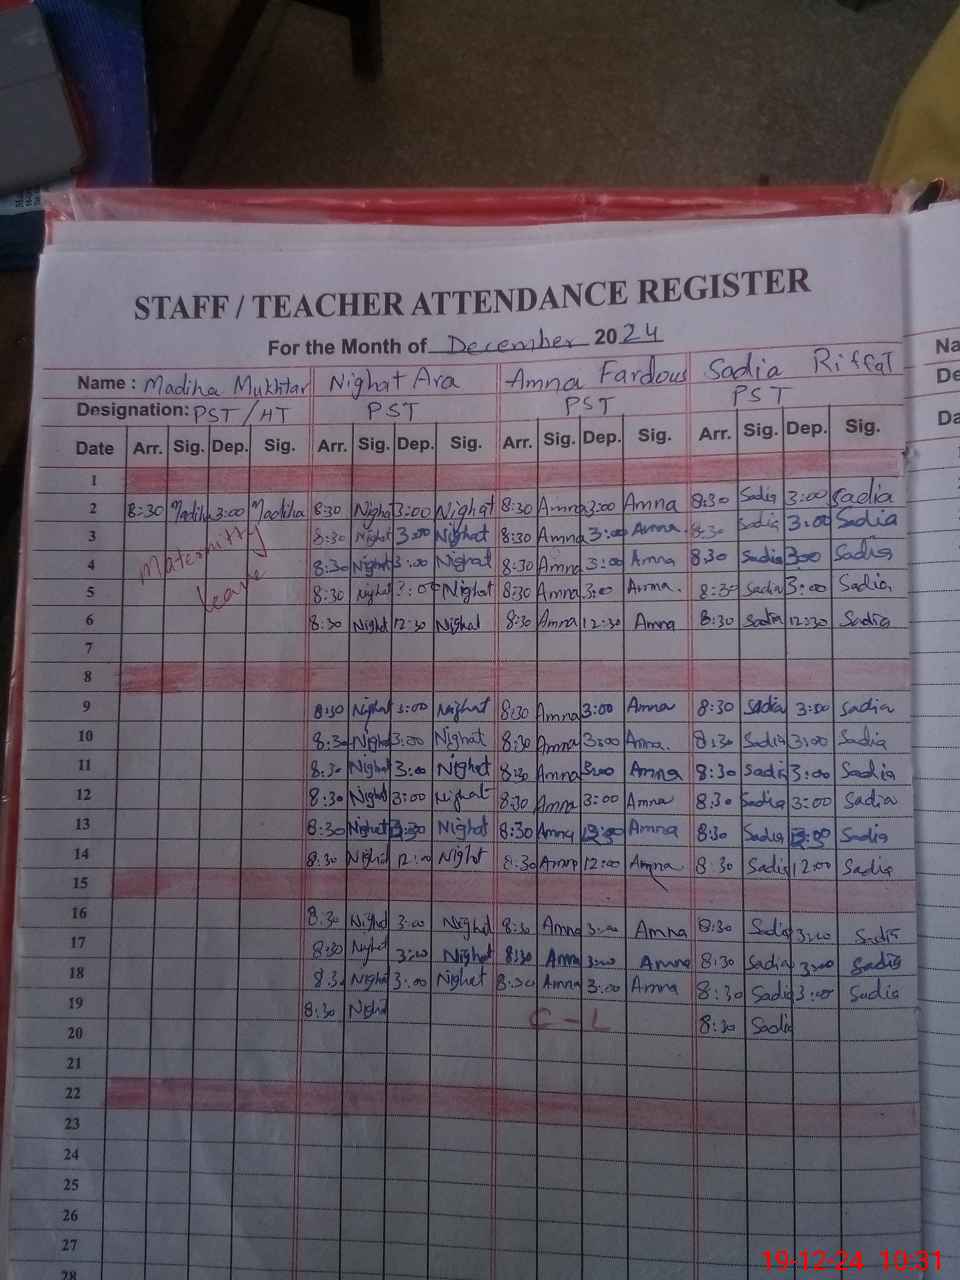 STAFF / TEACHER ATTENDANCE REGISTER
For the Month of December 2024
Name : Madiha Mukhtar Nighat Ara Amna Fardous Sadia Riffat Na
Designation: PST/HT PST PST PST De
Date Arr. Sig. Dep. Sig. Arr. Sig. Dep. Sig. Arr. Sig. Dep. Sig. Arr. Sig. Dep. Sig. Da
1
2 8:30 Madiha 3:00 Madiha 8:30 Nighat 3:00 Nighat 8:30 Amna 3:00 Amna 8:30 Sadia 3:00 Sadia
3 Maternity 8:30 Nighat 3:00 Nighat 8:30 Amna 3:00 Amna. 8:30 Sadia 3:00 Sadia
4 8:30 Nighat 3:00 Nighat 8:30 Amna 3:00 Amna 8:30 Sadia 3:00 Sadia
5 Leave 8:30 Nighat 3:00 Nighat 8:30 Amna 3:00 Amna. 8:30 Sadia 3:00 Sadia
6 8:30 Nighat 12:30 Nighat 8:30 Amna 12:30 Amna 8:30 Sadia 12:30 Sadia
7
8
9 8:30 Nighat 3:00 Nighat 8:30 Amna 3:00 Amna 8:30 Sadia 3:00 Sadia
10 8:30 Nighat 3:00 Nighat 8:30 Amna 3:00 Amna. 8:30 Sadia 3:00 Sadia
11 8:30 Nighat 3:00 Nighat 8:30 Amna 3:00 Amna 8:30 Sadia 3:00 Sadia
12 8:30 Nighat 3:00 Nighat 8:30 Amna 3:00 Amna 8:30 Sadia 3:00 Sadia
13 8:30 Nighat Nighat 8:30 Amna Amna 8:30 Sadia Sadia
14 8:30 Nighat 12:00 Nighat 8:30 Amna 12:00 Amna 8:30 Sadia 12:00 Sadia
15
16 8:30 Nighat 3:00 Nighat 8:30 Amna 3:00 Amna 8:30 Sadia 3:00 Sadia
17 8:30 Nighat 3:00 Nighat 8:30 Amna 3:00 Amna 8:30 Sadia 3:00 Sadia
18 8:30 Nighat 3:00 Nighat 8:30 Amna 3:00 Amna 8:30 Sadia 3:00 Sadia
19 8:30 Nighat C-L 8:30 Sadia
20
21
22
23
24
25
26
27
28
19-12-24 10:31